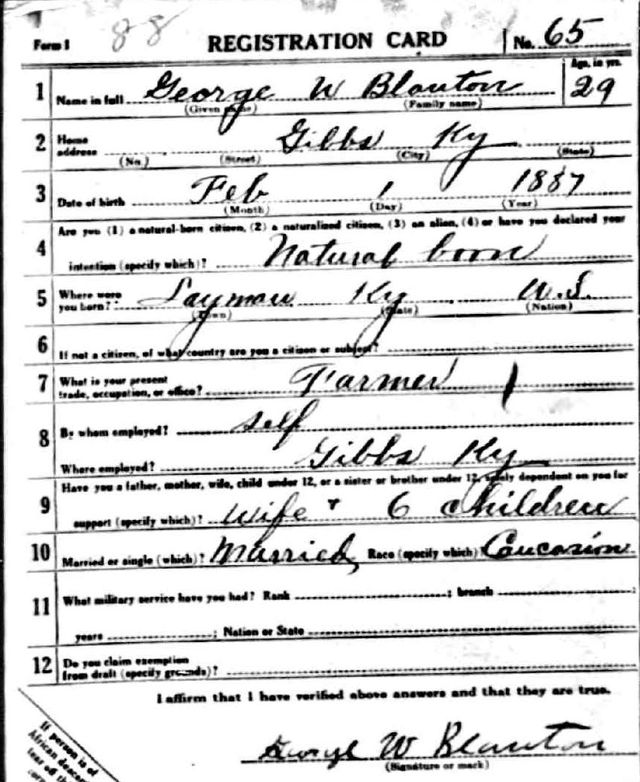 Form 1 88 REGISTRATION CARD No. 65
1 Name in full George W Blanton Age, in yrs. 29
(Given name) (Family name)
2 Home address Gibbs Ky
(No.) (Street) (City) (State)
3 Date of birth Feb 1 1887
(Month) (Day) (Year)
Are you (1) a natural-born citizen, (2) a naturalized citizen, (3) an alien, (4) or have you declared your
4 intention (specify which)? Natural born
5 Where were you born? Layman Ky U.S.
(Town) (State) (Nation)
6 If not a citizen, of what country are you a citizen or subject?
7 What is your present trade, occupation, or office? Farmer
8 By whom employed? self
Where employed? Gibbs Ky
Have you a father, mother, wife, child under 12, or a sister or brother under 12, solely dependent on you for
9 support (specify which)? Wife + 6 children
10 Married or single (which)? Married Race (specify which)? Caucasion
11 What military service have you had? Rank ; branch ;
years ; Nation or State
12 Do you claim exemption from draft (specify grounds)?
I affirm that I have verified above answers and that they are true.
George W Blanton
(Signature or mark)
If person is of
African descent
tear off this